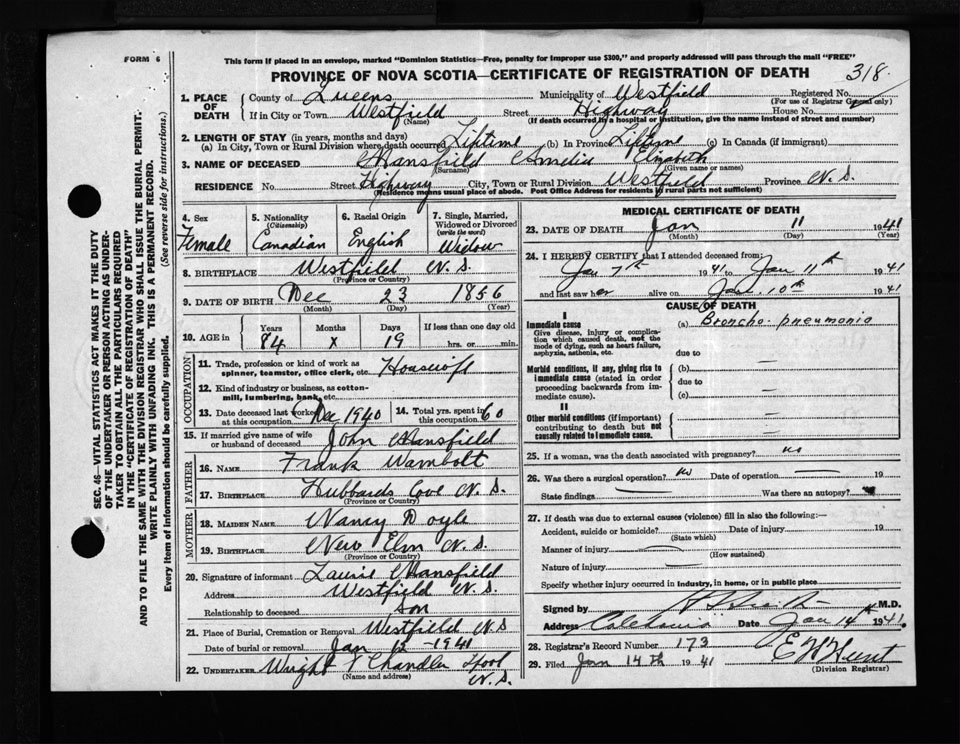 FORM 6
This form if placed in an envelope, marked "Dominion Statistics—Free, penalty for improper use $300," and properly addressed will pass through the mail "FREE"
PROVINCE OF NOVA SCOTIA—CERTIFICATE OF REGISTRATION OF DEATH
318
1. PLACE OF DEATH
County of Queens Municipality of Westfield Registered No.
(For use of Registrar General only)
If in City or Town Westfield Street Highway House No.
(Name) (If death occurred in a hospital or institution, give the name instead of street and number)
2. LENGTH OF STAY (in years, months and days)
(a) In City, Town or Rural Division where death occurred Liftime (b) In Province Liftime (c) In Canada (if immigrant)
3. NAME OF DECEASED Mansfield Amelia Elizabeth
(Surname) (Given name or names)
RESIDENCE No. Street Highway City, Town or Rural Division Westfield Province N.S.
(Residence means usual place of abode. Post Office Address for residents in rural parts not sufficient)
4. Sex
Female
5. Nationality
(Citizenship)
Canadian
6. Racial Origin
English
7. Single, Married, Widowed or Divorced
(write the word)
Widow
8. BIRTHPLACE Westfield N.S.
(Province or Country)
9. DATE OF BIRTH Dec 23 1856
(Month) (Day) (Year)
10. AGE in
Years Months Days If less than one day old
84 x 19 hrs. or min.
OCCUPATION
11. Trade, profession or kind of work as spinner, teamster, office clerk, etc. Housewife
12. Kind of industry or business, as cotton-mill, lumbering, bank, etc.
13. Date deceased last worked at this occupation Dec 1940
14. Total yrs. spent in this occupation 60
15. If married give name of wife or husband of deceased John Mansfield
FATHER
16. NAME Frank Wambolt
17. BIRTHPLACE Hubbards Cove N.S.
(Province or Country)
MOTHER
18. MAIDEN NAME Nancy Doyle
19. BIRTHPLACE New Elm N.S.
(Province or Country)
20. Signature of informant Laurie Mansfield
Address Westfield N.S.
Relationship to deceased Son
21. Place of Burial, Cremation or Removal Westfield N.S
Date of burial or removal Jan 12 - 1941
22. UNDERTAKER Wright & Chandler N.S.
(Name and address)
MEDICAL CERTIFICATE OF DEATH
23. DATE OF DEATH Jan 11 1941
(Month) (Day) (Year)
24. I HEREBY CERTIFY that I attended deceased from:
Jan 7th 1941 to Jan 11th 1941
and last saw her alive on Jan 10th 1941
CAUSE OF DEATH
I
Immediate cause
Give disease, injury or complication which caused death, not the mode of dying, such as heart failure, asphyxia, asthenia, etc.
(a) Broncho-pneumonia
due to
Morbid conditions, if any, giving rise to immediate cause (stated in order proceeding backwards from immediate cause).
(b)
due to
(c)
II
Other morbid conditions (if important) contributing to death but not causally related to immediate cause.
25. If a woman, was the death associated with pregnancy? no
26. Was there a surgical operation? no Date of operation 19
State findings Was there an autopsy?
27. If death was due to external causes (violence) fill in also the following:—
Accident, suicide or homicide? Date of injury 19
(State which)
Manner of injury
(How sustained)
Nature of injury
Specify whether injury occurred in industry, in home, or in public place
Signed by M.D.
Address Caledonia Date Jan 14th 1941
28. Registrar's Record Number 173
29. Filed Jan 14th 1941 E W Hunt
(Division Registrar)
SEC. 46—VITAL STATISTICS ACT MAKES IT THE DUTY
OF THE UNDERTAKER OR PERSON ACTING AS UNDER-
TAKER TO OBTAIN ALL THE PARTICULARS REQUIRED
IN THE "CERTIFICATE OF REGISTRATION OF DEATH"
AND TO FILE THE SAME WITH THE DIVISION REGISTRAR WHO SHALL ISSUE THE BURIAL PERMIT.
WRITE PLAINLY WITH UNFADING INK. THIS IS A PERMANENT RECORD.
Every item of information should be carefully supplied. (See reverse side for instructions.)